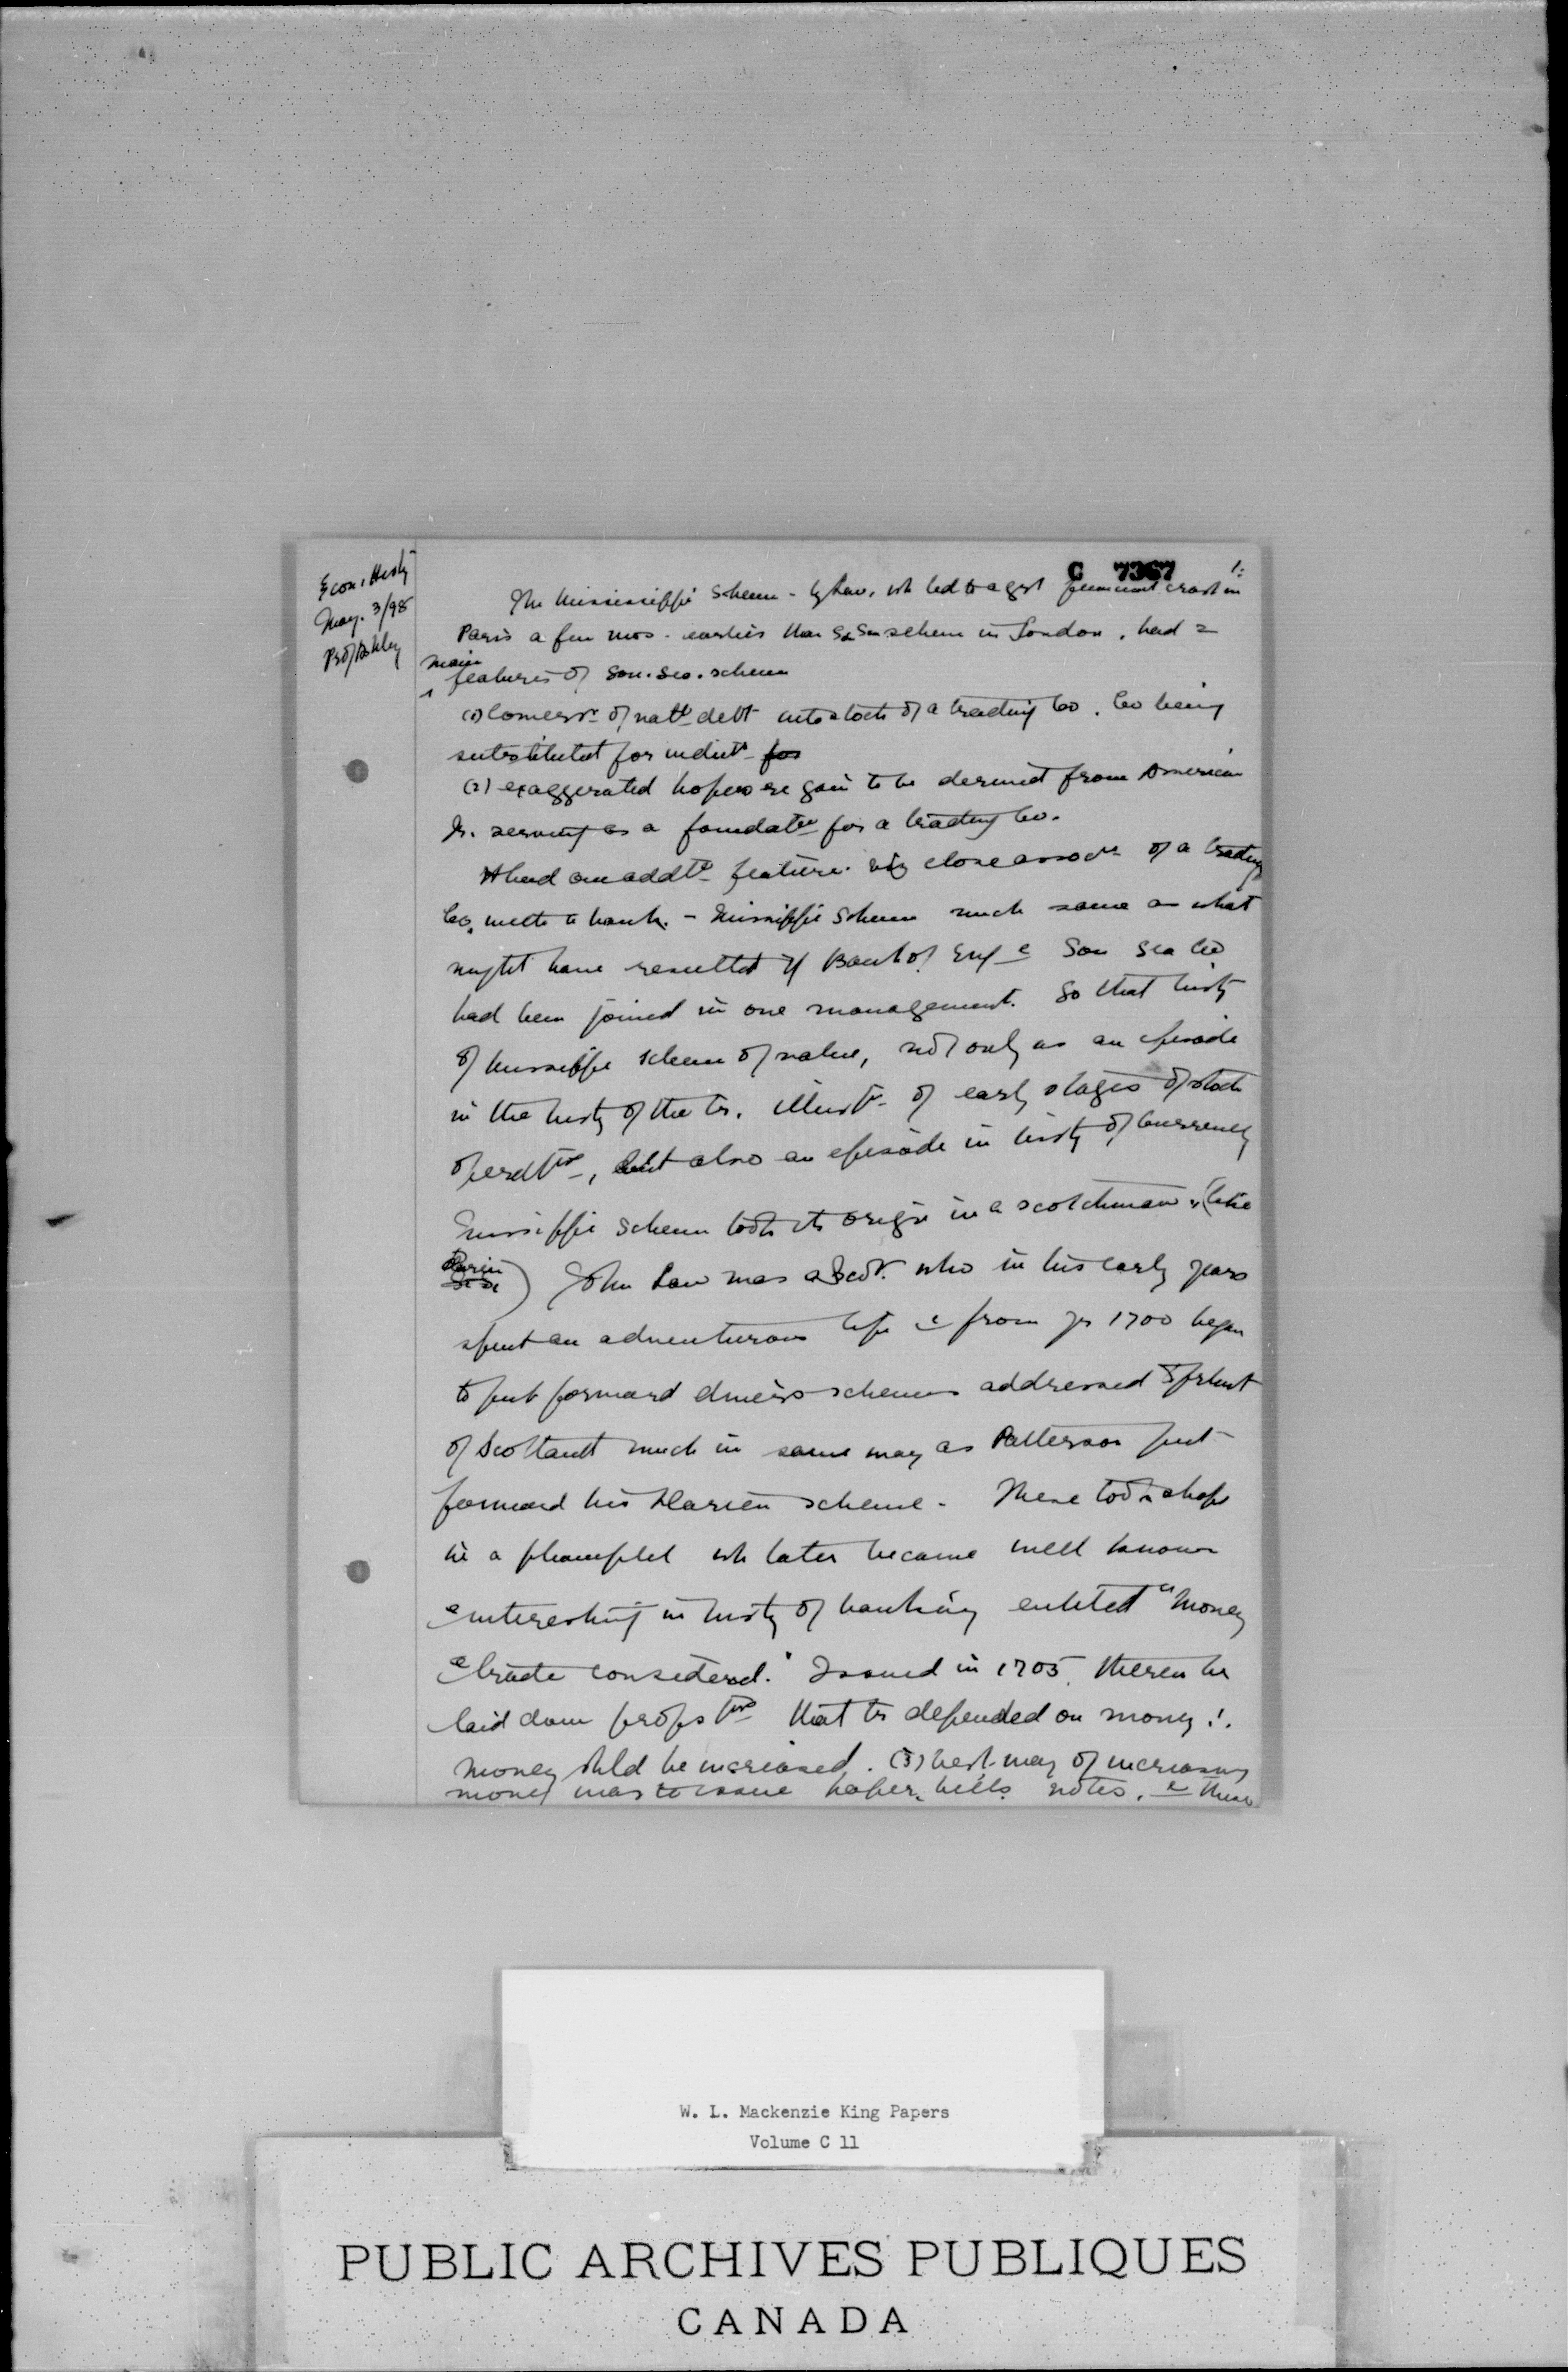 Econ. Histy
May. 3/98
Prof Ashley
C 7367
1.
The Mississippi Scheme - by Law, wh led to a grt financial crash in
Paris a few mos. earlier than So Sea scheme in London, had 2
main
features of Sou. Sea. scheme
(1) Conversn of natl debt into stock of a trading Co. Co being
substituted for indivls for
(2) exaggerated hopes re gain to be derived from American
tr. serving as a foundatn for a trading Co.
It had an addtl feature. viz close assocn of a trading
Co. with a bank. - Mississippi Scheme much same as what
might have resulted if Bank of Eng & Sou Sea Co
had been joined in one management. So that histy
of Mississippi scheme of value, not only as an episode
in the histy of the tr. illustn of early stages of stock
operatns, but also an episode in histy of Currency
Mississippi Scheme took its origin in a scotchman (like
Darien
) John Law was a Scot. who in his early years
spent an adventurous life & from yr 1700 began
to put forward divers schemes addressed to prlmt
of Scotland much in same way as Patterson put
forward his Darien scheme. These took shape
in a phamplet wh later became well known
& interesting in histy of banking entitled "Money
& trade considered." Issued in 1705. therein he
laid down propstns that tr depended on money !.
money shld be increased. (3) best way of increasing
money was to issue paper, bills notes, & these
W. L. Mackenzie King Papers
Volume C 11
PUBLIC ARCHIVES PUBLIQUES
CANADA